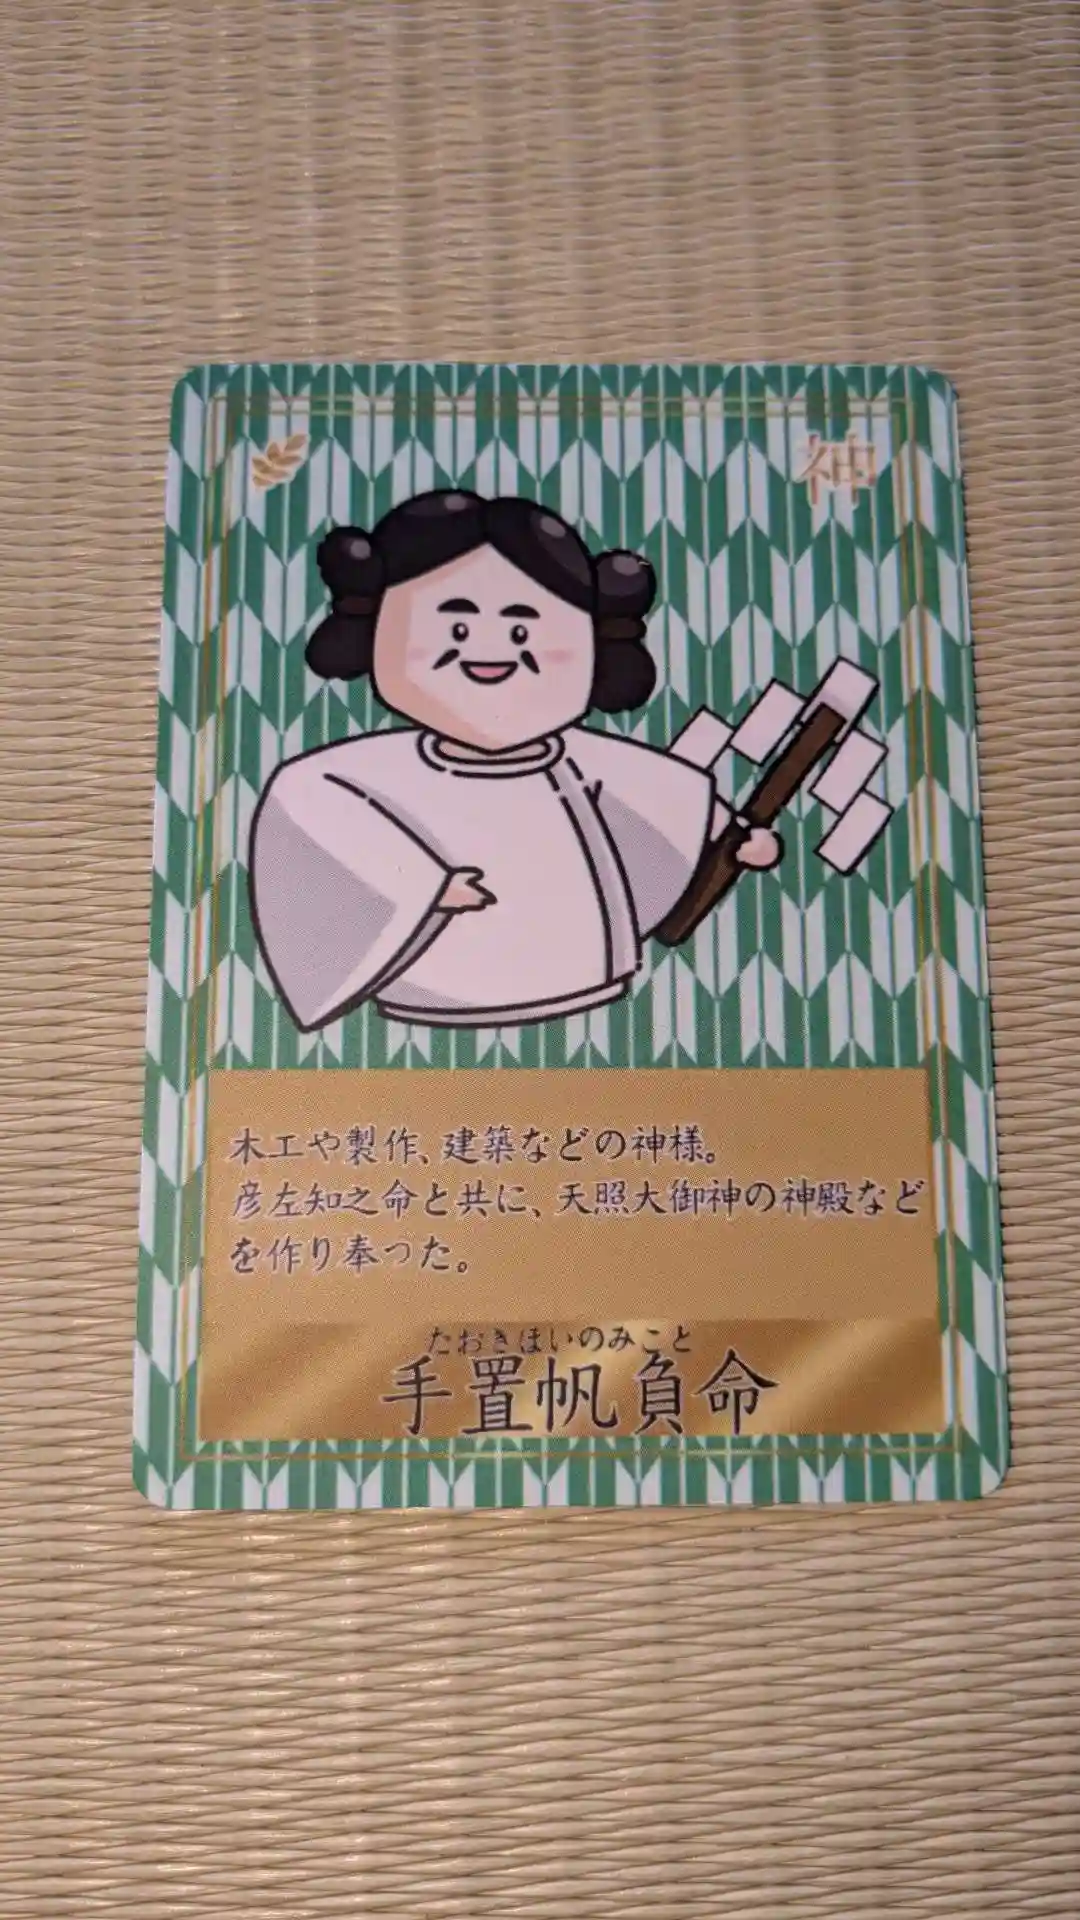 神
木工や製作、建築などの神様。
彦左知之命と共に、天照大御神の神殿など
を作り奉った。
たおきほいのみこと
手置帆負命